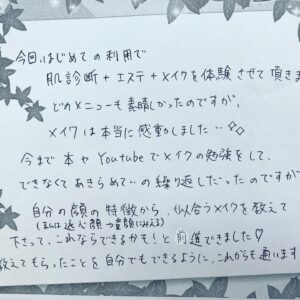 今回、はじめての利用で
肌診断+エステ+メイクを体験させて頂きま
どのメニューも素晴しかったのですが、
メイクは本当に感動しました…✧✧
今まで本やYoutubeでメイクの勉強をして、
できなくてあきらめての繰り返しだったのですが
自分の顔の特徴から、似合うメイクを教えて
(私は逆ん顔→童顔にみえる)
下さって、これならできるかも!と前進できました♡
教えてもらったことを自分でもできるように、これからも通います